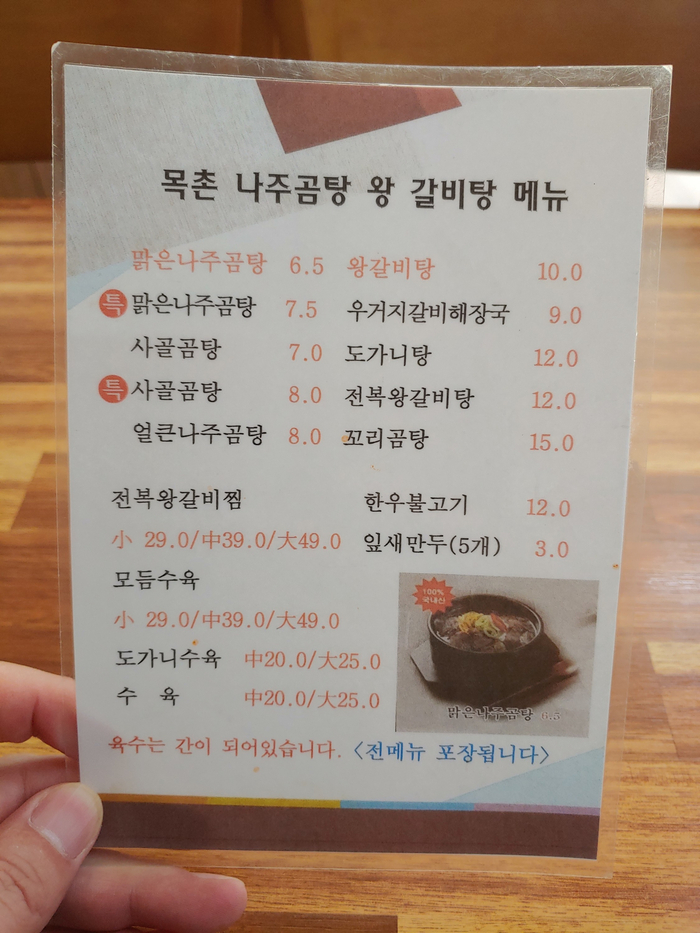 목촌 나주곰탕 왕 갈비탕 메뉴
맑은나주곰탕 6.5 왕갈비탕 10.0
특 맑은나주곰탕 7.5 우거지갈비해장국 9.0
사골곰탕 7.0 도가니탕 12.0
특 사골곰탕 8.0 전복왕갈비탕 12.0
얼큰나주곰탕 8.0 꼬리곰탕 15.0
전복왕갈비찜
小 29.0/中39.0/大49.0
모듬수육
小 29.0/中39.0/大49.0
도가니수육 中20.0/大25.0
수 육 中20.0/大25.0
한우불고기 12.0
잎새만두(5개) 3.0
100%
국내산
맑은나주곰탕 6.5
육수는 간이 되어있습니다. <전메뉴 포장됩니다>